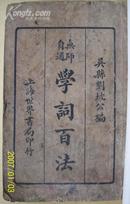 吳縣劉坡公編
無師
自通
學詞百法
上海世界書局印行
2007/01/03